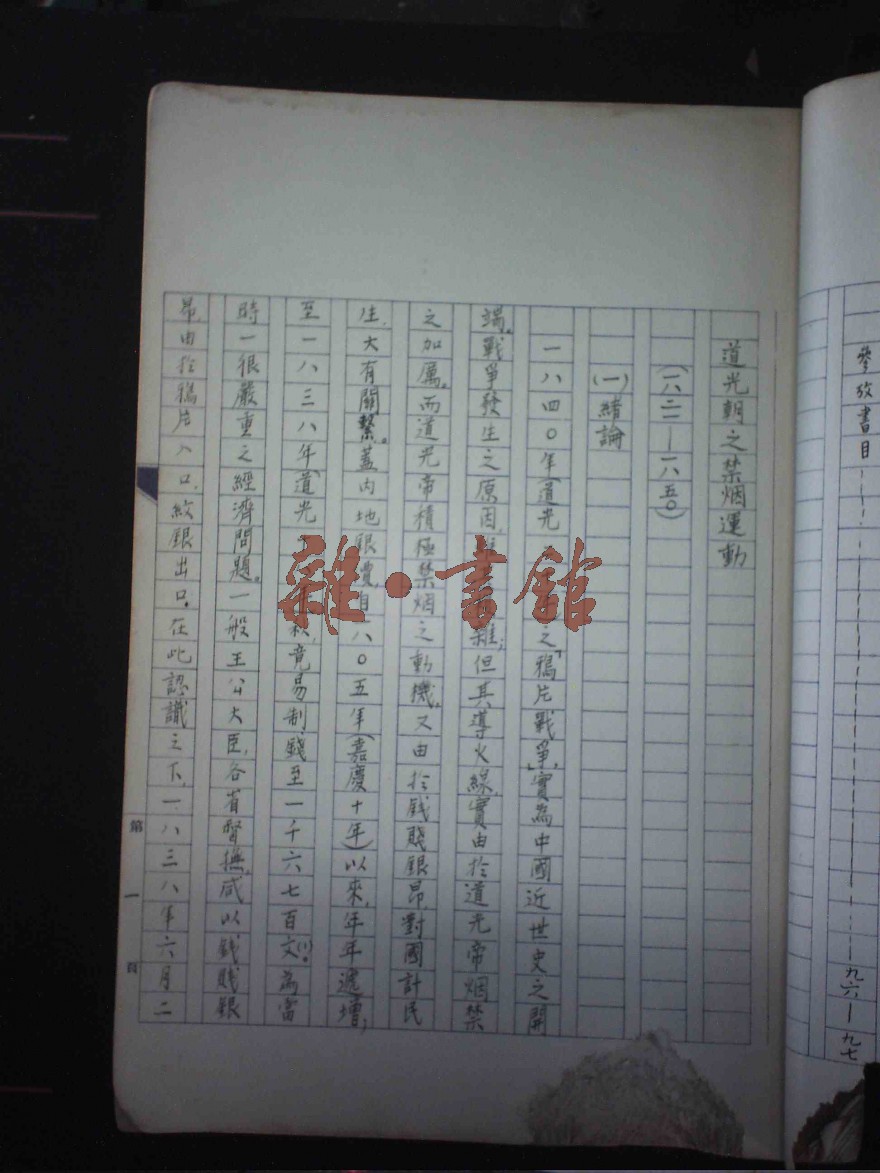 參攷書目——————九六—九七
道光朝之禁烟運動
(一八二一—一八五〇)
(一)緒論
一八四〇年(道光之「鴉片戰爭」,實為中國近世史之開
端。戰爭發生之原因,雜;但其導火線,實由於道光帝烟禁
之加厲。而道光帝積極禁烟之動機,又由於錢賤銀昂對國計民
生,大有關繫。蓋內地銀價,自一八〇五年(嘉慶十年)以來,年年遞增;
至一八三八年(道光秋,竟易制錢至一千六七百文(1)。為當
時一很嚴重之經濟問題。一般王公大臣,各省督撫,咸以錢賤銀
昂,由於鴉片入口,紋銀出口。在此認識之下,一八三八年六月二
第一頁
雜·書館